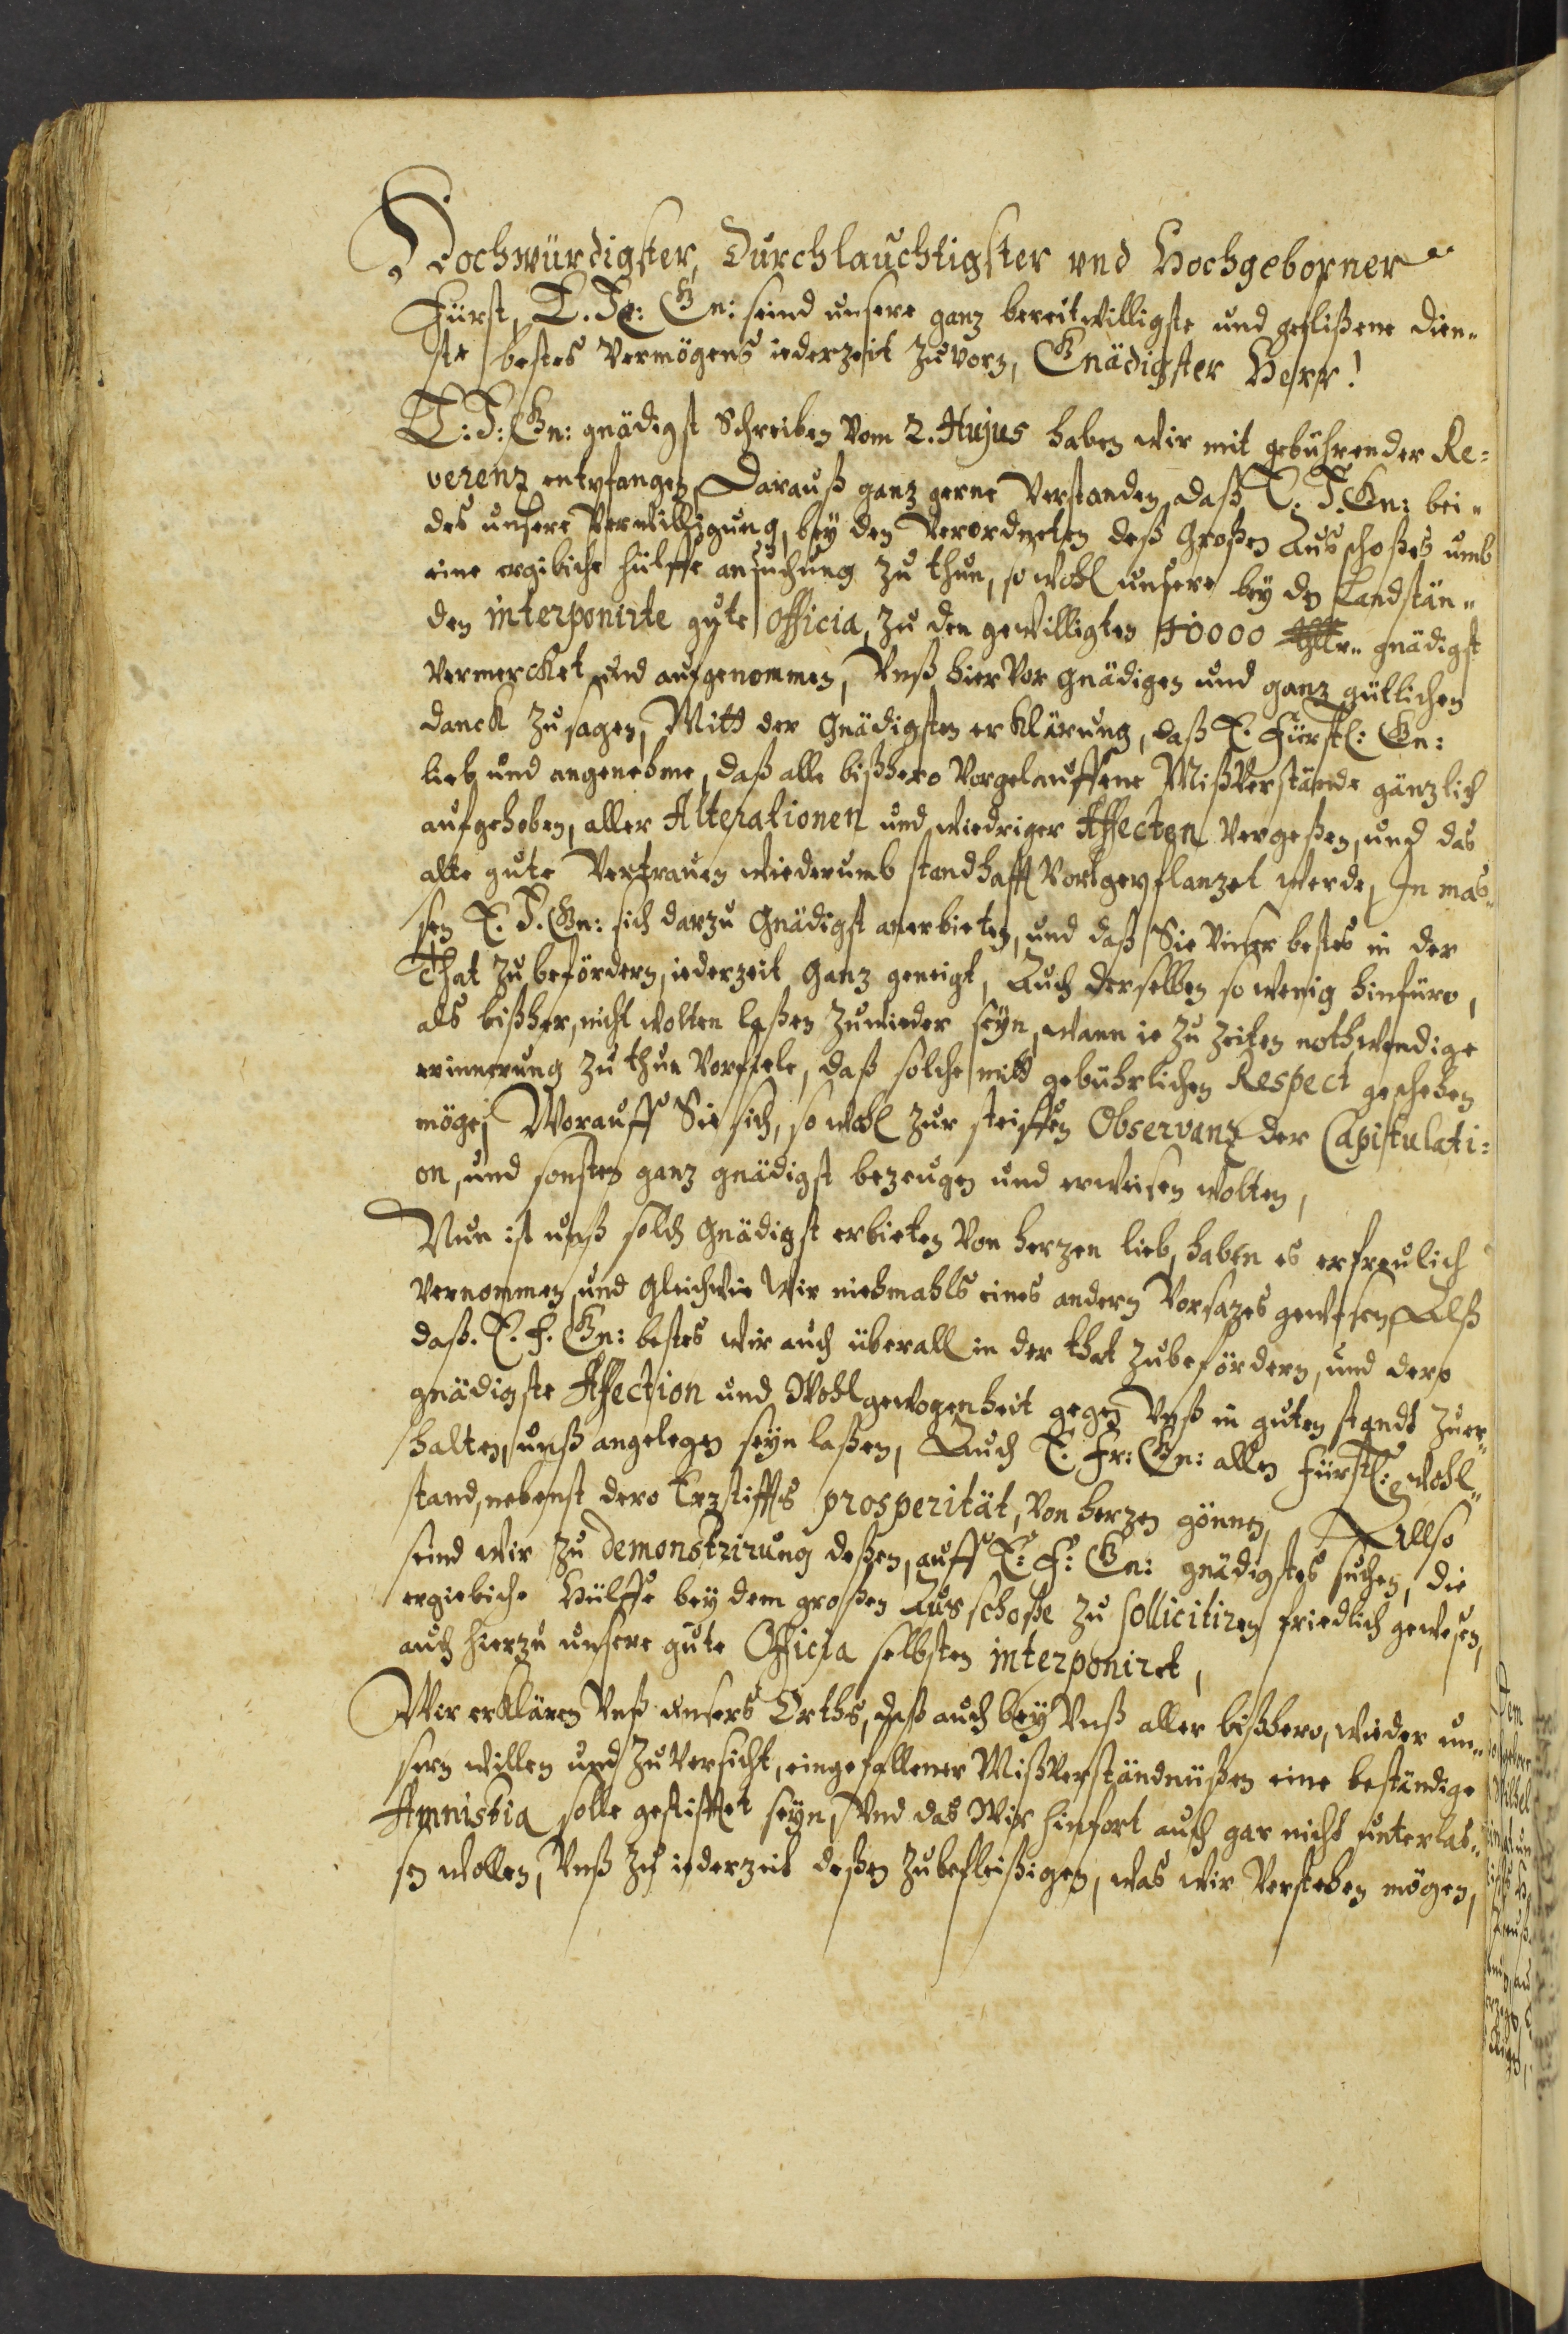 Hochwürdigster, Durchlauchtigster vnd Hochgeborner
Fürst, E. Fr: Gn: seind unsere ganz bereitwilligste und geflißene dien„
ste bestes Vermögens iederzeit zuvorn, Gnädigster Herr!
E: F: Gn: gnädigst Schreiben Vom 2. Hujus haben wir mit gebührender Re=
verenz entpfangen, Darauß ganz gerne Verstanden, daß E. F. Gn: bei„
des unsere Verwilligung, bey den Verordneten deß Großen Ausschoßes umb
eine ergibiche hülffe ansuchung zu thun, so wohl unsere bey den Landstän„
den interponirte gute officia, zu den gewilligten 40000 thlr„ gnädigst
vermercket und aufgenommen, Vnß hier Vor gnädigen und ganz gütlichen
danck zusagen, Mitt der Gnädigsten erklärung, daß E. Fürstl: Gn:
lieb und angenehme, daß alle bißhero Vorgelauffene Mißverstände gänzlich
aufgehoben, aller Alterationen und wiedriger Affecten Vergeßen, und das
alte gute Vertrauen wiederumb standhafft Vortgepflanzet werde, In mas„
sen E. F. Gn: sich darzu Gnädigst anerbieten, und daß Sie Vnser bestes in der
That zubefördern, iederzeit Ganz geneigt, Auch derselben so wenig hinfüro,
als bißher, nicht wolten laßen zuwieder seyn, wann ie zu zeiten nothwendige
erinnerung zu thun Vorfiele, daß solche mitt gebührlichen Respect geschehen
möge, Worauff Sie sich, so wohl zur steiffen Observanz der Capitulati=
on, und sonsten ganz gnädigst bezeugen und erweisen wolten,
Nun ist unß solch Gnädigst erbieten Von herzen lieb, haben es erfreulich
vernommen, und Gleichwie Wir niehmahls eines andern Vorsazes gewesen, Alß
daß. E. F. Gn: bestes wir auch überall in der that zubefördern, und dero
gnädigste Affection und Wohlgewogenheit gegen Vnß in guten standt zuer„
halten, unß angelegen seyn laßen, Auch E. Fr: Gn: allen Fürstl: wohl„
stand, nebenst dero Erzstiffts prosperität, Von herzen gönnen, Allso
seind wir zu demonstrirung deßen, auff E: F: Gn: gnädigstes suchen, die
ergiebiche Hülffe bey dem großen Ausschoße zu sollicitiren friedlich gewesen,
auch hierzu unsere gute Officia selbsten interponiret,
Wir erklären Vnß unsers Orths, daß auch bey Vnß aller bißhero, wieder un„
sern willen und zuversicht, eingefallener Mißverständnüßen eine beständige
Amnistia solle gestifftet seyn, Vnd das Wir hinfort auch gar nicht unterlas„
sen wollen, Vnß zu iederzeit deßen zubefleißigen, was wir Verstehen mögen,